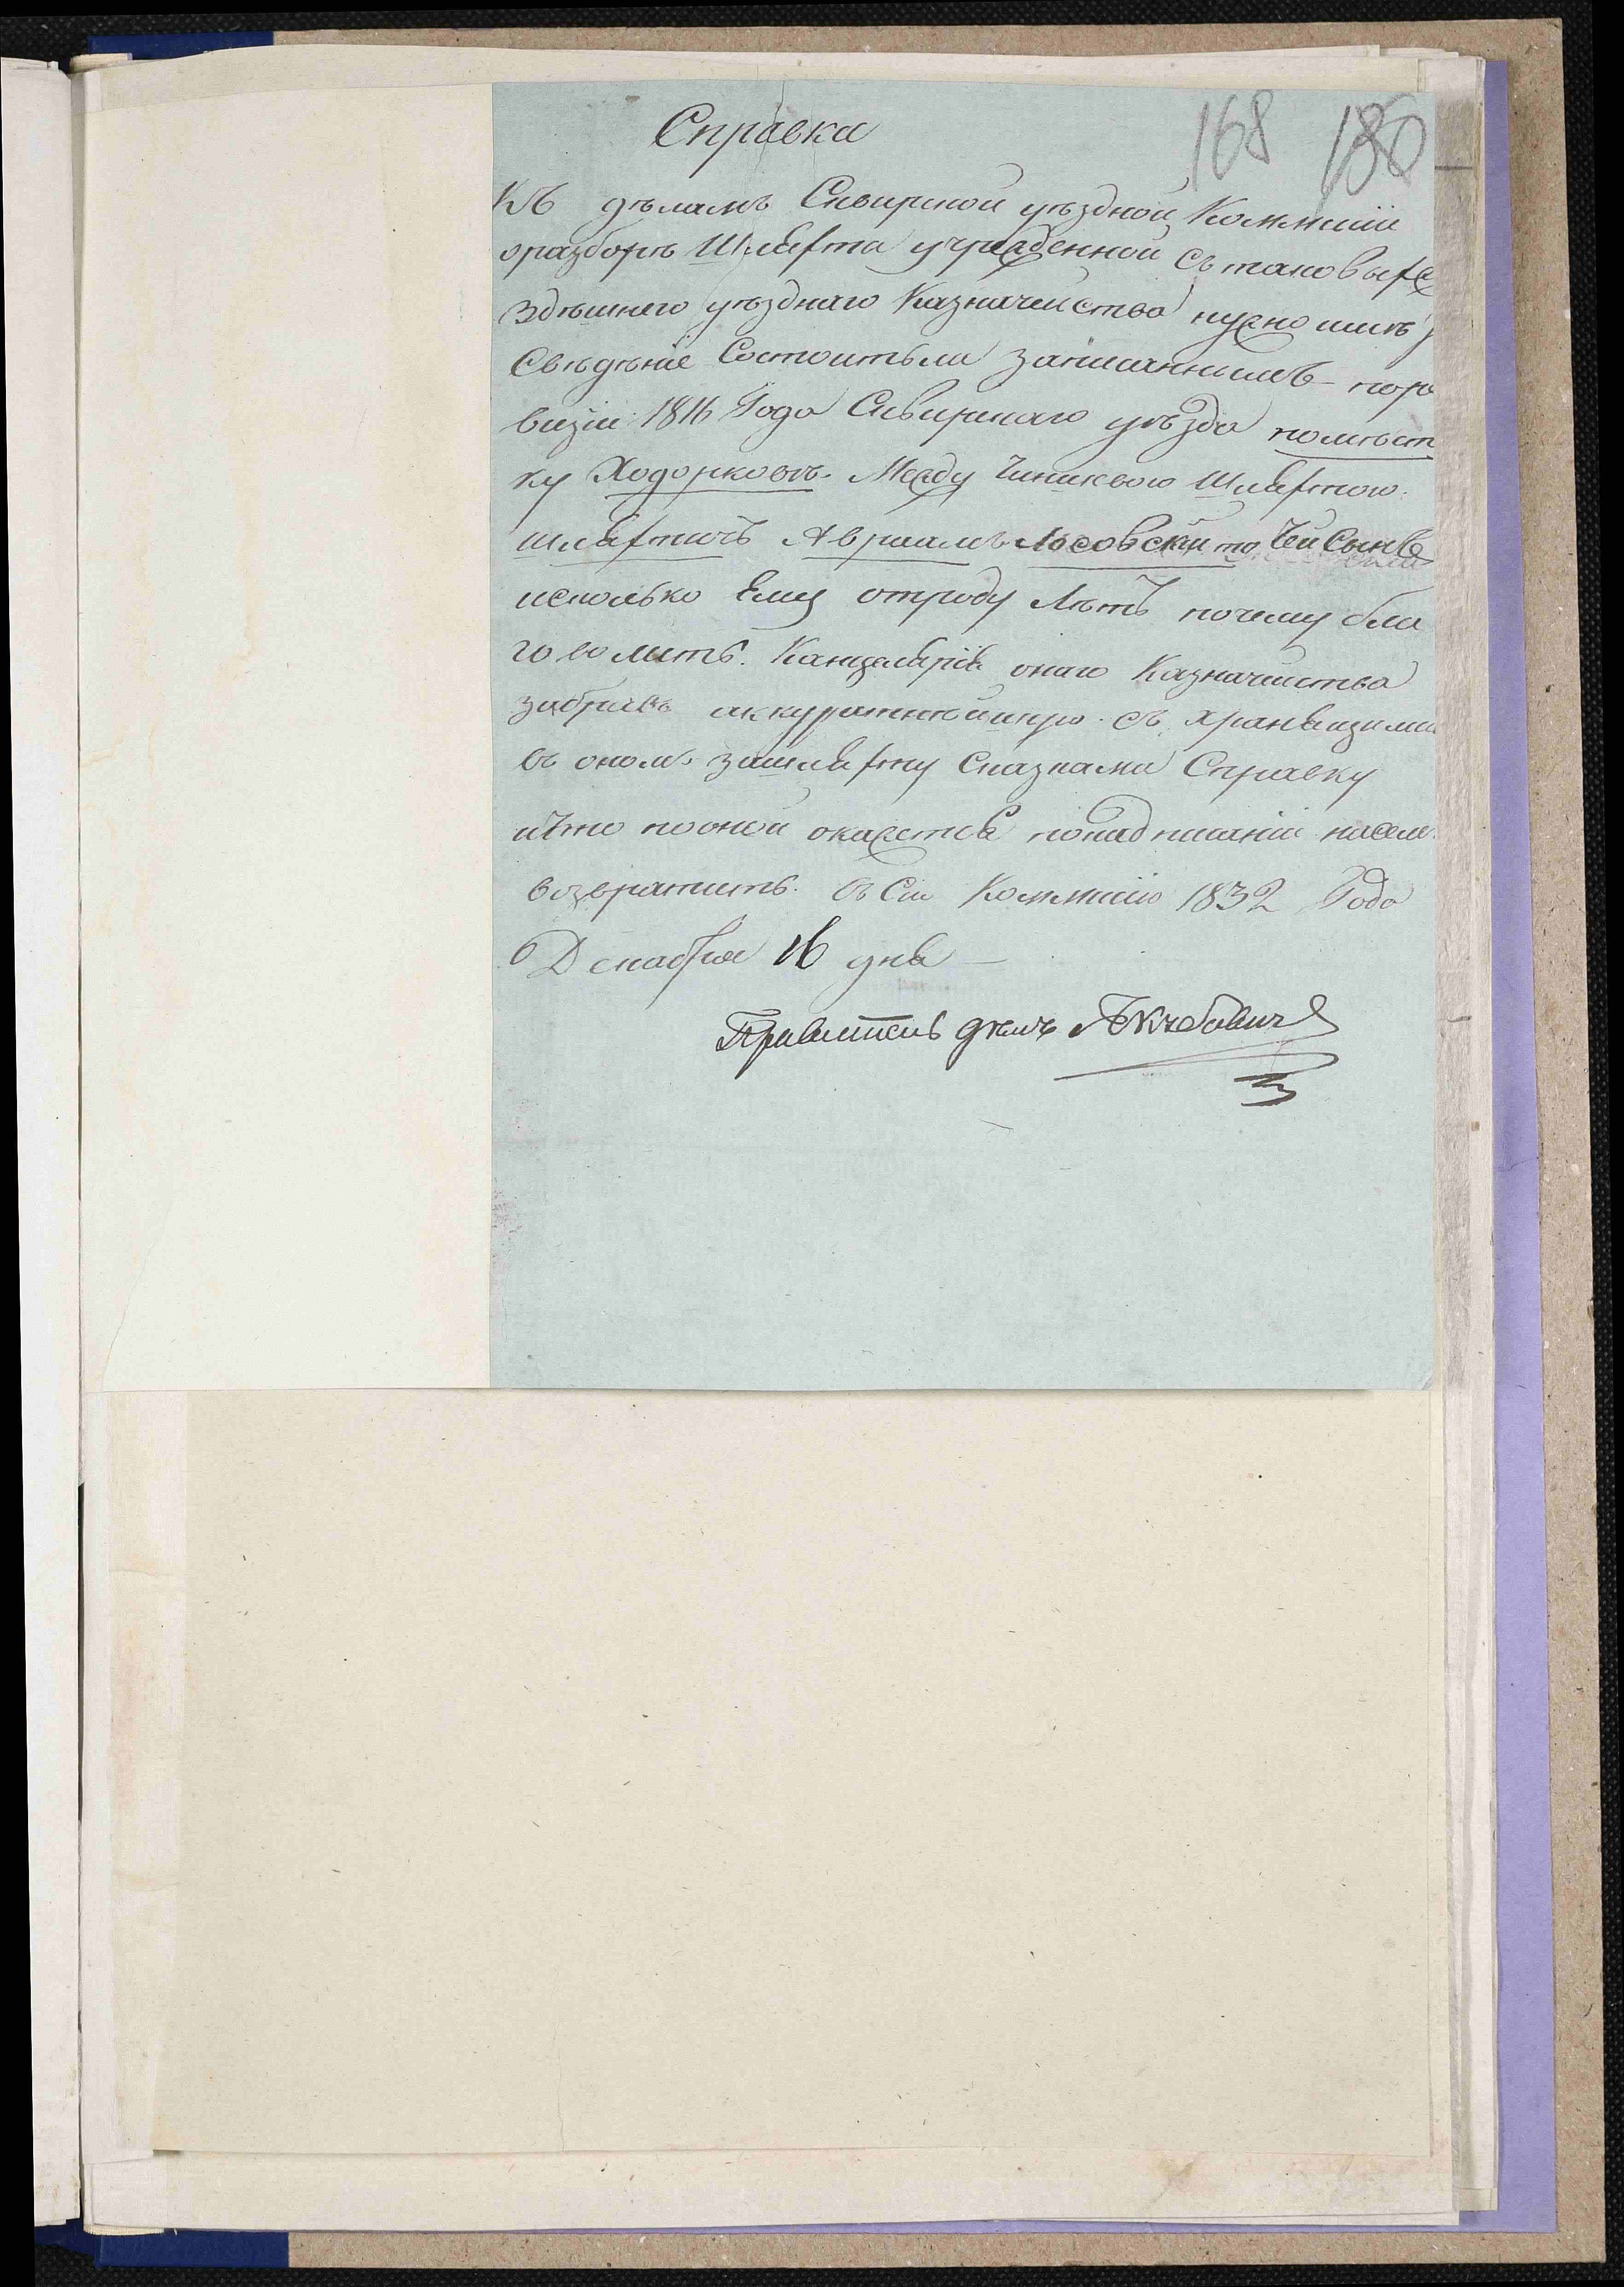 168 180
Справка
Къ дѣламъ Сквирской уѣздной Коммисіи
оразборѣ Шляхты учрежденной съ таковыхъ
Здѣшнего уѣзднаго Казначейства нужно имѣть
Свѣдѣніе Состоитъ ли записаннымъ по ре
визіи 1816 Года Сквирскаго уѣзда помѣст
ку Ходорковъ Между Чиншевою Шляхтою
шляхтичъ Авраамъ Лосовский то Чей Сынъ
исколько Ему отроду Лѣтъ почему бла
говолитъ Канцелярія онаго Казначейства
забравъ аккуратнѣйшую съ хранящимися
въ ономъ зашляхту Сказками Справку
ичто по оной окажется понадписаніи насем
возвратить въ Сію Коммисію 1832 Года
Декабря 16 дня
Правитель дѣлъ